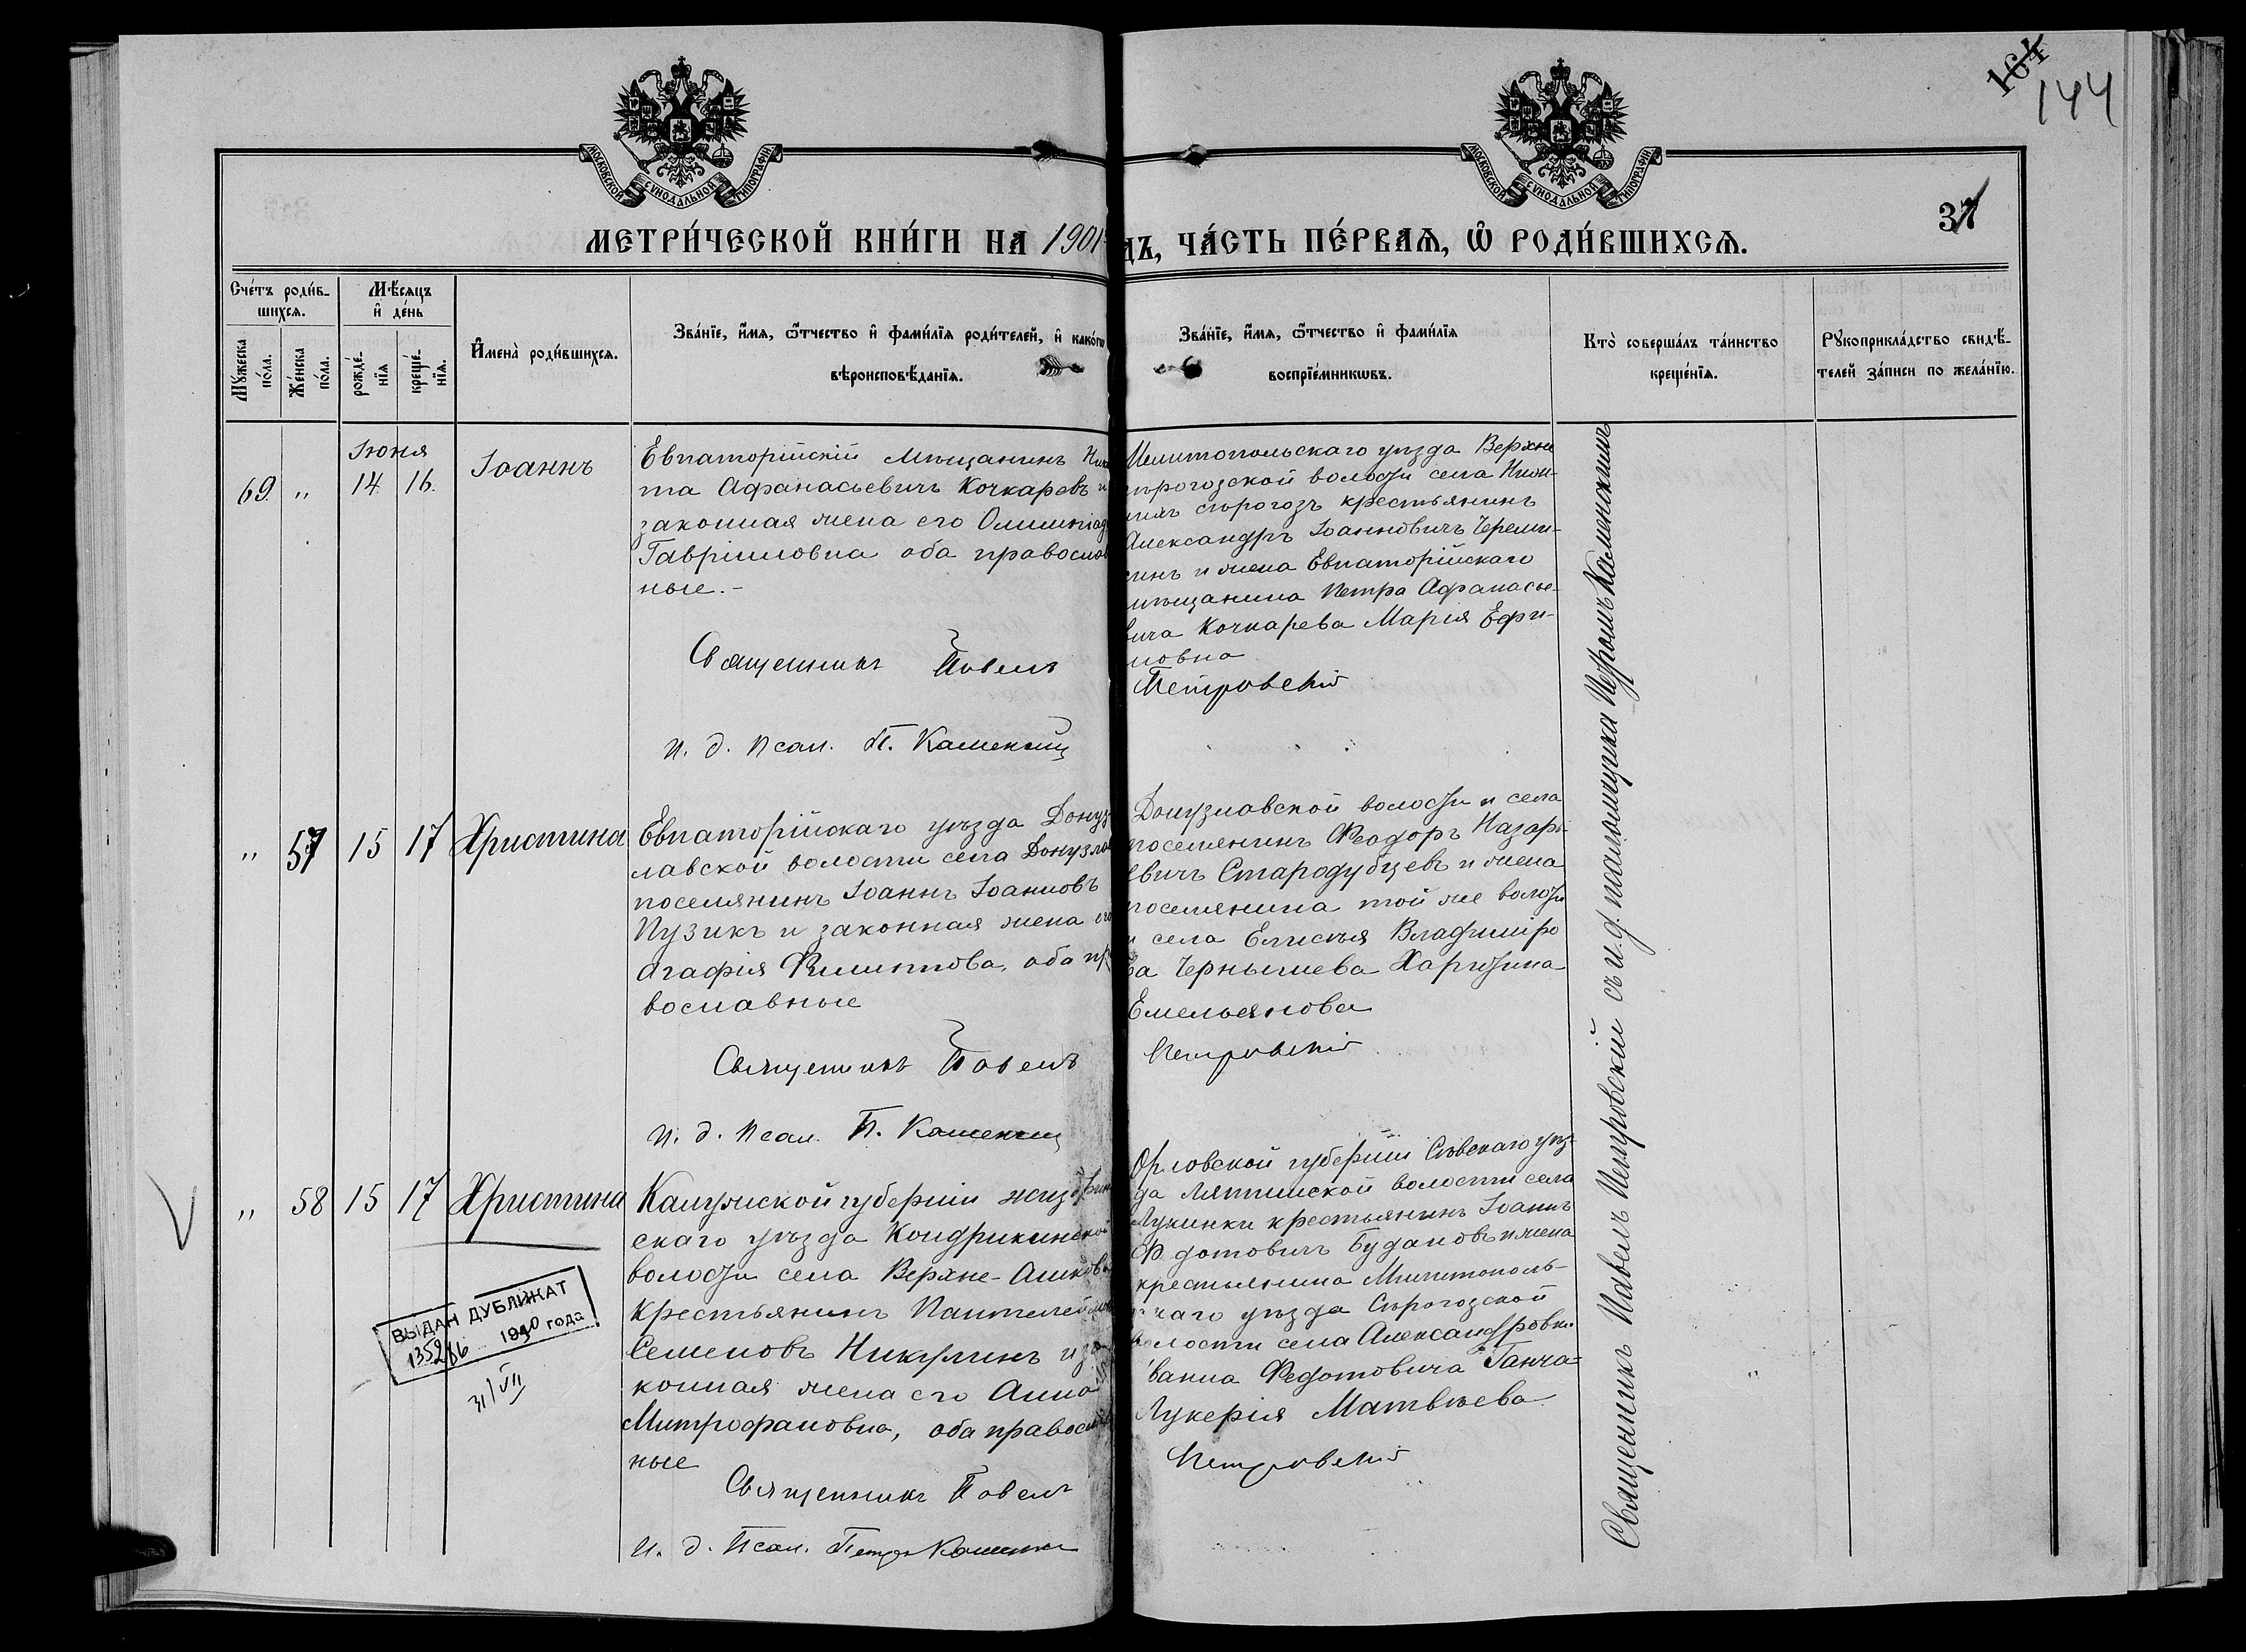 164
144
37
МОСКОВСКОЙ СѴНОДАЛЬНОЙ ТИПОГРАФІИ
МОСКОВСКОЙ СѴНОДАЛЬНОЙ ТИПОГРАФІИ
МЕТРИ́ЧЕСКОЙ КНИ́ГИ НА 1901
ДЪ, ЧА́СТЬ ПЕ́РВАѦ, Ѡ҆ РОДИ́ВШИХСѦ.
Сче́тъ роди́в-
шихсѧ.
Мѣ́сѧцъ
и҆ де́нь
Мꙋ́жеска по́ла.
Же́нска по́ла.
рожде́-
нїѧ
креще́-
нїѧ.
И҆мена̀ роди́вшихсѧ.
Зва́нїе, и҆́мѧ, ѻ҆́тчество и҆ фами́лїѧ роди́телей, и҆ како́гѡ
вѣроисповѣ́данїѧ.
Зва́нїе, и҆́мѧ, ѻ҆́тчество и҆ фами́лїѧ
воспрїе́мникѡвъ.
Кто̀ соверша́лъ та́инство
креще́нїѧ.
Рꙋкоприкла́дство свидѣ́-
телей за́писи по жела́нїю.
Іюня
69. " 14 16. Іоаннъ
Евпаторійскій мѣщанинъ Ники
та Афанасьевичъ Кочкаревъ и
законная жена его Олимпіад
Гавріиловна оба православ
ные.-
Священникъ Павелъ
И. д. Псал. П. Каменскій
Мелитопольскаго уѣзда Верхне
сѣрогозской волости села Ниж-
нихъ Сѣрогозъ крестьянинъ
Александръ Іоанновичъ Череми-
синъ и жена Евпаторійскаго
мѣщанина Петра Афанасье-
вича Кочкарева Марія Ефи-
мовна
Петровскій
" 57 15 17 Христина
Евпаторійскаго уѣзда Донуз
лавской волости села Донузлав
поселянинъ Іоаннъ Іоанновъ
Пузикъ и законная жена его
Агафія Филиппова, оба пра
вославные
Священникъ Павелъ
И. д. Псал. П. Каменскій
Донузлавской волости и села
поселянинъ Феодоръ Назарь-
евичъ Стародубцевъ и жена
поселянина той же волости
и села Елисѣя Владиміро
ва Чернышева Харитина
Емельянова
Петровскій
" 58 15 17 Христина
Калужской губерніи Жиздрин
скаго уѣзда Кондрыкинской
волости села Верхне-Ашково
крестьянинъ Пантелеймонъ
Семеновъ Никулинъ и за
конная жена его Анна
Митрофановна, оба православ
ные
Священникъ Павелъ
И. д. Псал. Петръ Каменскій
Орловской губерніи Сѣвскаго уѣз-
да Ляпинской волости села
Лукинки крестьянинъ Іоаннъ
Федотовичъ Будановъ и жена
крестьянина Мелитополь-
скаго уѣзда Сѣрогозской
волости села Александровки
Ивана Федотовича Ганча-
Лукерія Матвѣева.
Петровскій
Священникъ Павелъ Петровскій съ и.д. псаломщика Петромъ Каменскимъ
ВЫДАН ДУБЛИКАТ
1940 года
31/VII